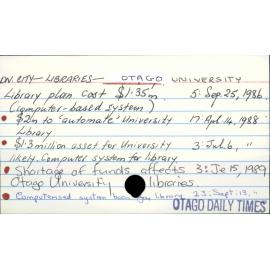 DN. CITY - LIBRARIES - OTAGO UNIVERSITY
Library plan cost $1.35m 5: Sep. 25, 1986
(computer-based system)
• $2m to 'automate' University 17: Apl. 14, 1988
Library
• $1.3 million asset for University 3: Jul. 6, "
likely. Computer system for library
• Shortage of funds affects 3: Je 15, 1989
Otago University libraries.
• Computerised system Uni. library 23: Sept. 13, "
OTAGO DAILY TIMES